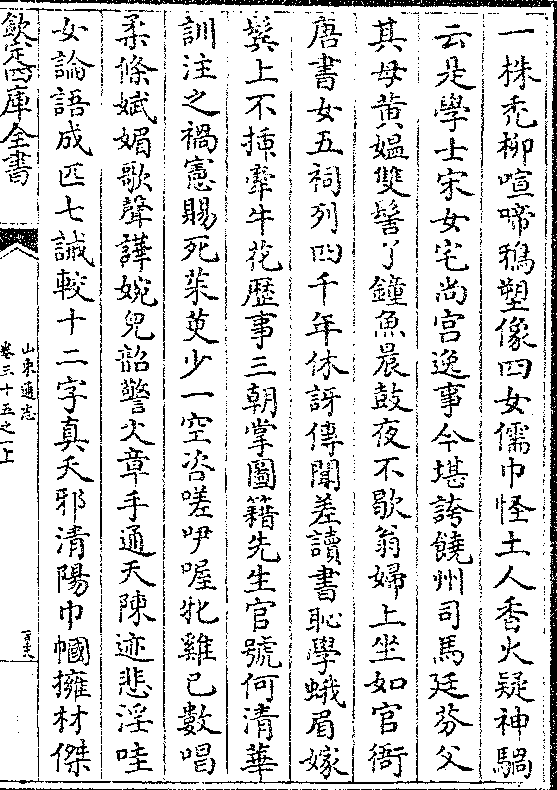 一株禿柳喧啼鴉塑像四女儒巾怪土人香火疑神騧
云是學士宋女宅尚宮逸事今堪誇饒州司馬廷芬父
其母黃媼雙髻丫鐘魚晨鼓夜不歇翁婦上坐如官衙
唐書女五祠列四千年休訝傳聞差讀書恥學蛾眉嫁
鬢上不揷牽牛花歷事三朝掌圖籍先生官號何清華
訓注之禍憲賜死茱萸少一空咨嗟吚喔牝雞已數唱
柔條斌媚歌聲譁婉兒韶警火章手通天陳迹悲淫哇
女論語成匹七誡較十二字真天邪清陽巾幗擁材傑
欽定四庫全書
山東通志
卷三十五之一上